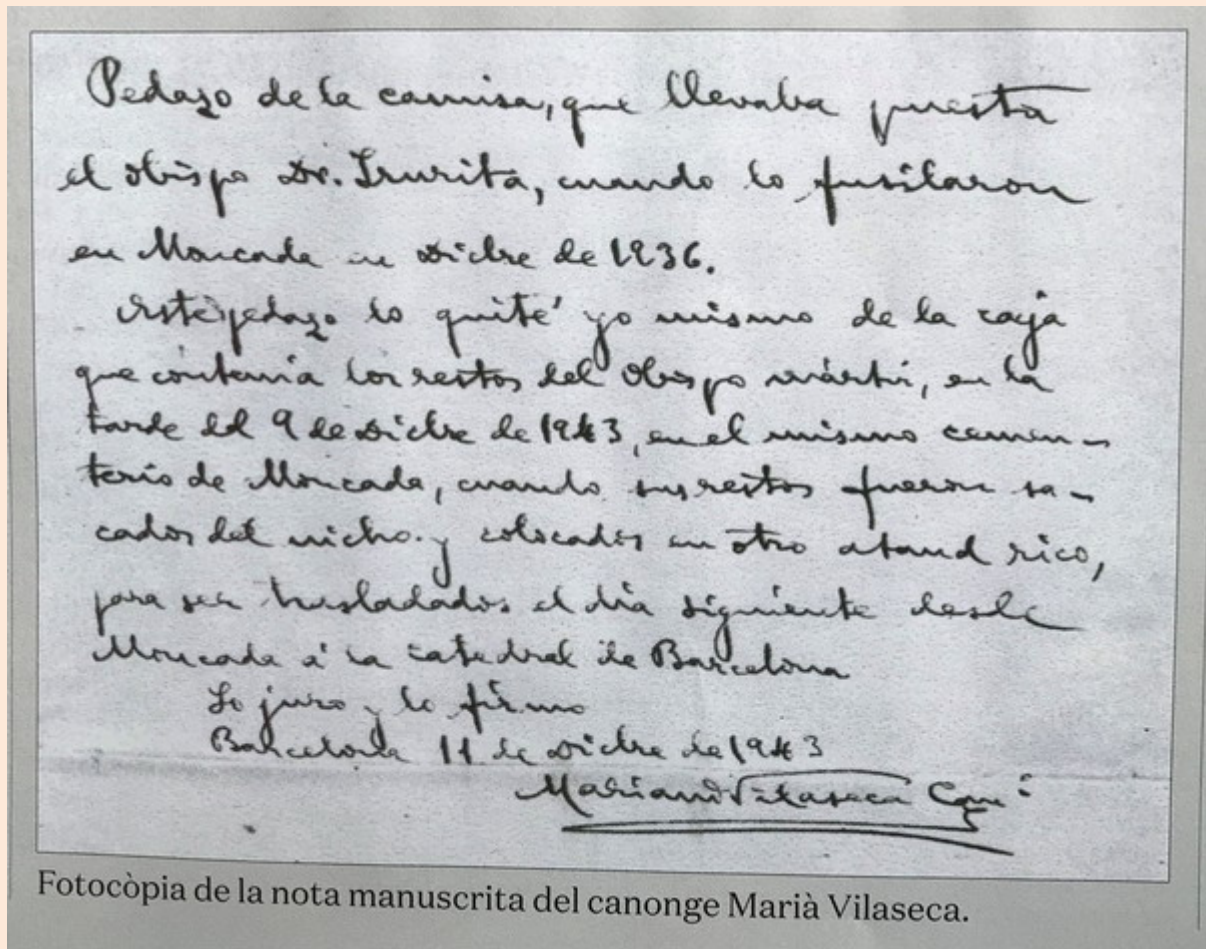 Pedazo de la camisa, que llevaba puesta
el obispo Dr. Irurita, cuando lo fusilaron
en Moncada en Dicbre de 1936.
Este pedazo lo quité yo mismo de la caja
que contenia los restos del obispo mártir, en la
tarde del 9 de Dicbre de 1943, en el mismo cemen-
terio de Moncada, cuando sus restos fueron sa-
cados del nicho y colocados en otro ataud rico,
para ser trasladados el dia siguiente desde
Moncada á la catedral de Barcelona
Lo juro y lo firmo
Barcelona 11 de Dicbre de 1943
Mariano Vilaseca
Fotocòpia de la nota manuscrita del canonge Marià Vilaseca.